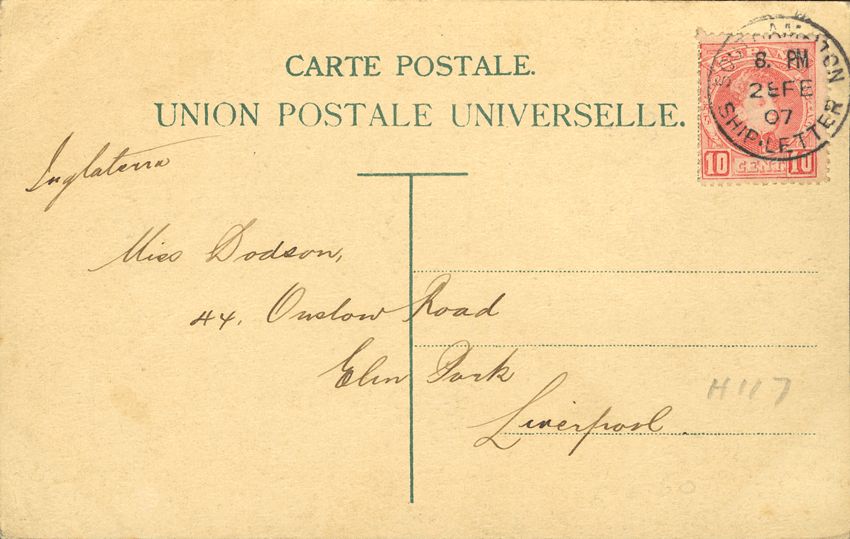 CARTE POSTALE.
UNION POSTALE UNIVERSELLE.
SOUTHAMPTON
8. PM
2 FE
07
SHIP-LETTER
10 CENT 10
Inglaterra
Miss Dodson,
44, Onslow Road
Elm Park
Liverpool.
H117